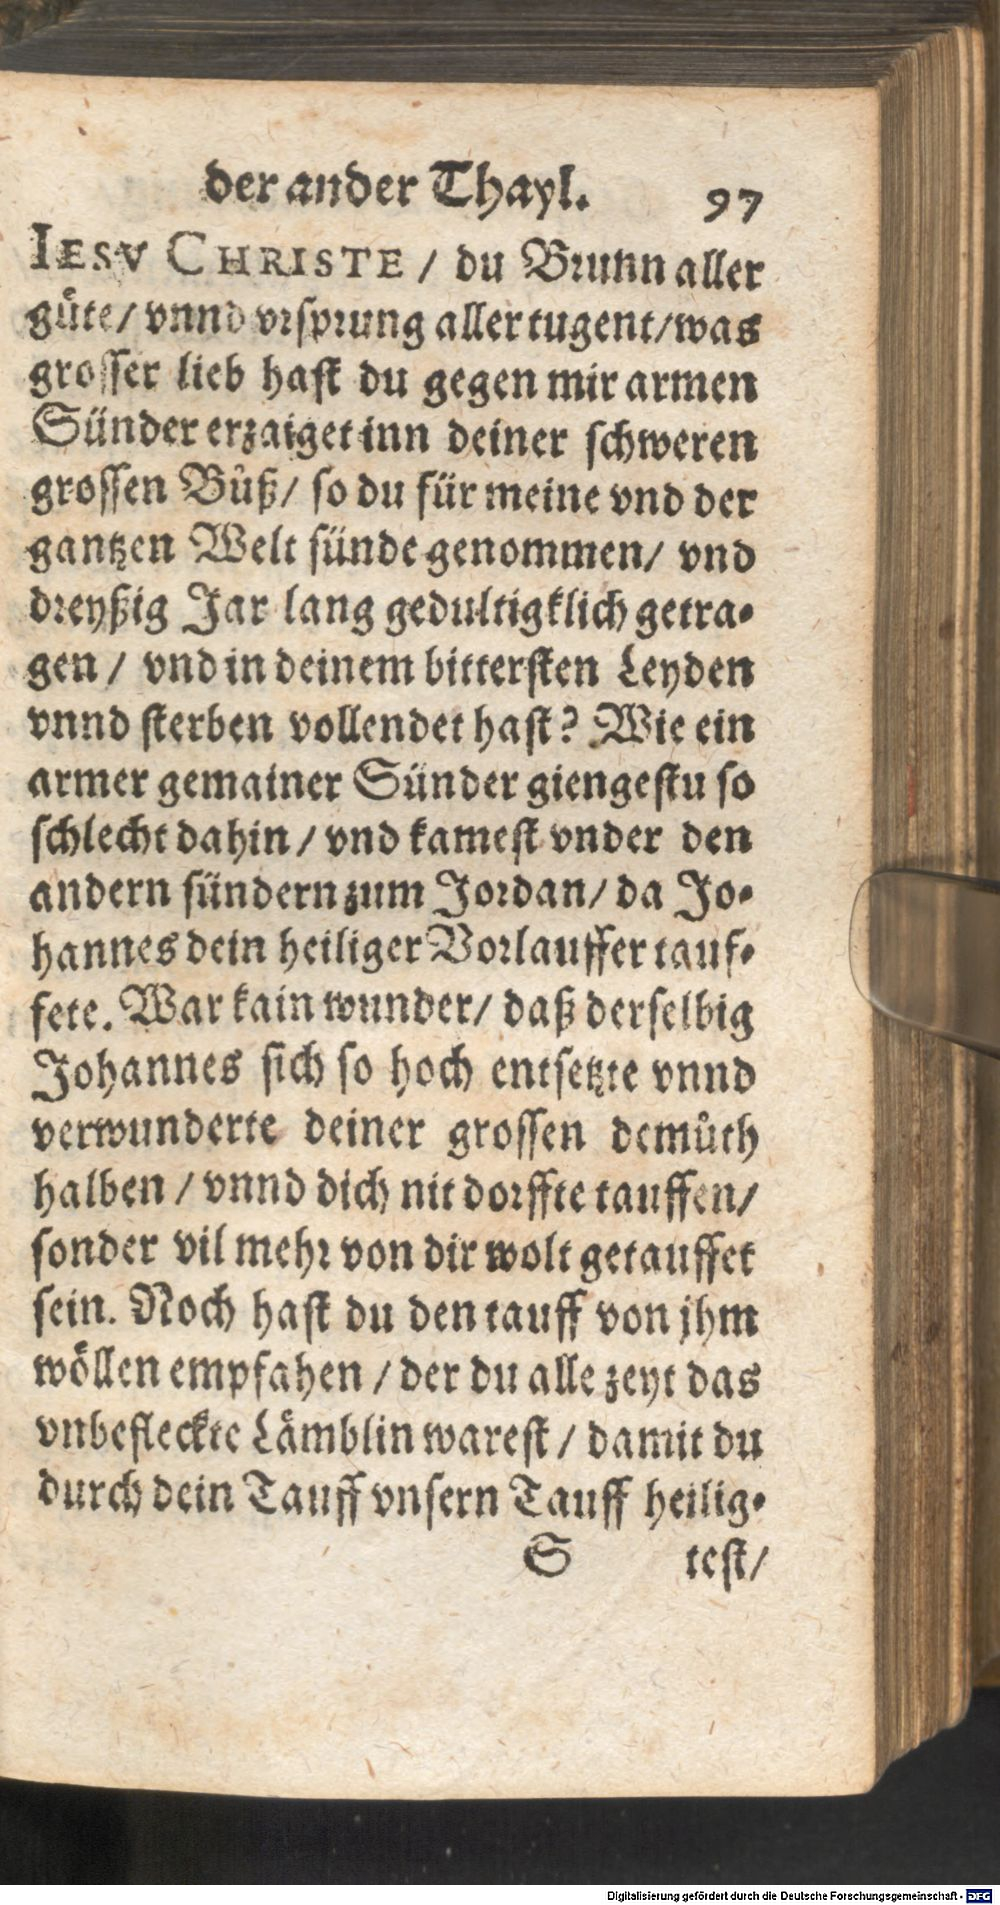 der ander Thayl. 97
IESV CHRISTE / du Brunn aller
güte / vnnd vrsprung aller tugent / was
grosser lieb hast du gegen mir armen
Sünder erzaiget inn deiner schweren
grossen Bůß / so du für meine vnd der
gantzen Welt sünde genommen / vnd
dreyßig Jar lang gedultigklich getra-
gen / vnd in deinem bittersten Leyden
vnnd sterben vollendet hast? Wie ein
armer gemainer Sünder giengestu so
schlecht dahin / vnd kamest vnder den
andern sündern zum Jordan / da Jo-
hannes dein heiliger Vorlauffer tauf-
fete. War kain wunder / daß derselbig
Johannes sich so hoch entsetzte vnnd
verwunderte deiner grossen demůth
halben / vnnd dich nit dorffte tauffen /
sonder vil mehr von dir wolt getauffet
sein. Noch hast du den tauff von jhm
wöllen empfahen / der du alle zeyt das
vnbefleckte Lämblin warest / damit du
durch dein Tauff vnsern Tauff heilig-
S test /
Digitalisierung gefördert durch die Deutsche Forschungsgemeinschaft - DFG